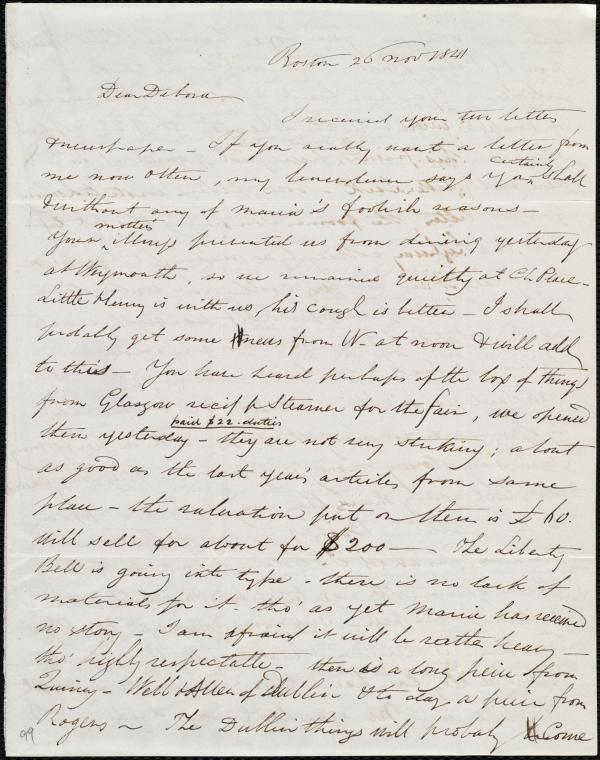 Boston 26 Nov 1841
Dear Debora
I received your two letters
& newspaper – If you really want a letter from
me now & then, my benevolence says you certainly shall
& without any of maria's foolish reasons –
Your mother's illness prevented us from dining yesterday
at Weymouth, so we remained quietly at Ch. Place –
Little Henry is with us, his cough is better – I shall
probably get some news from W. at noon & will add
to this – You have heard perhaps of the box of things
from Glasgow rec'd pr Steamer for the fair, we opened
them yesterday – paid $22. duties – they are not very striking; about
as good as the last year's articles from same
place – the valuation put on them is £60.
will sell for about for $200 — The Liberty
Bell is going into type – there is no lack of
materials for it. tho' as yet Maria has received
no story – I am afraid it will be rather heavy –
tho' highly respectable – there is a long piece from
Quincy – Webb & Allen of Dublin & to day a piece from
Rogers – The Dublin things will probably come
99